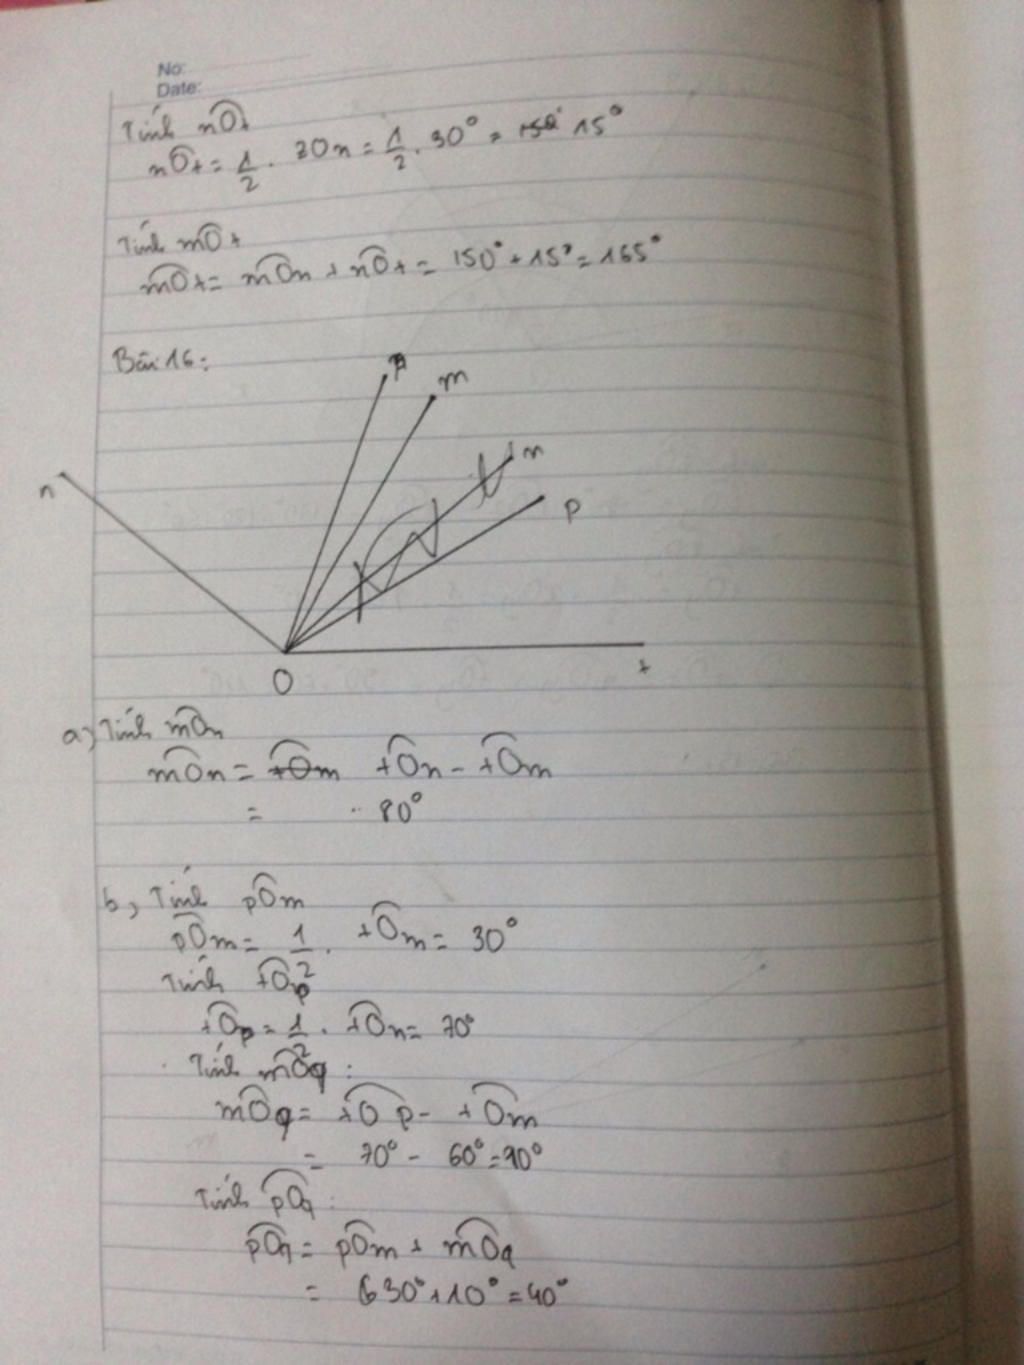 No:
Date:
Tính nOt
nOt = 1/2 . zOn = 1/2 . 30° = 15°
Tính mOt
mOt = mOn + nOt = 150° + 15° = 165°
Bài 16:
m
n
n
p
O
t
a, Tính mOn
mOn = tOm tOn - tOm
= 80°
b, Tính pOm
pOm = 1/2 . tOm = 30°
Tính tOp
tOp = 1/2 . tOn = 70°
Tính mOq :
mOq = tOp - tOm
= 70° - 60° = 10°
Tính pOq :
pOq = pOm + mOq
= 30° + 10° = 40°